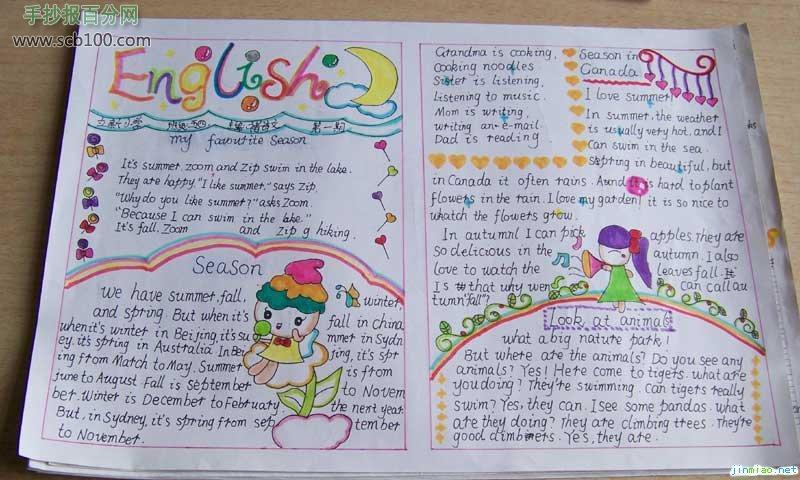 手抄报百分网
www.scb100.com
English
第一期
my favourite Season
It's summer. zoom and Zip swim in the lake.
They are happy. "I like summer," says Zip.
"Why do you like summer?" asks Zoom.
"Because I can swim in the lake."
It's fall. Zoom and Zip g hiking.
Season
We have summer, fall, winter,
and spring. But when it's fall in china
when it's winter in Beijing, it's su mmer in Sydn
ey. it's spring in Australia. In Bei jing, it's spr
ing from Match to May. Summer is from
June to August Fall is September to Novem
ber. Winter is December to February the next year.
But, in Sydney, it's spring from sep tember
to November.
Grandma is cooking,
Cooking noodles
Sister is listening,
Listening to music.
Mom is writing,
writing an e-mail
Dad is reading.
Season in
Canada
I love summer!
In summer, the weather
is usually very hot, and I
can swim in the sea.
Spring in beautiful, but
in Canada it often rains. Aound it is hard to plant
flowers in the rain. I love my garden! it is so nice to
whatch the flowers grow.
In autumn I can pick apples. They are
so delicious in the autumn. I also
love to watch the leaves fall. It
Is that why wen can call au
tumn "fall"?
Look at animals
what a big nature park!
But where are the animals? Do you see any
animals? Yes! Here come to tigers. what are
you doing? They're swimming. Can tigers really
swim? Yes, they can. I see some pandas. what
are they doing? They are climbing trees. They're
good climbners. Yes, they are.
jinmiao.net